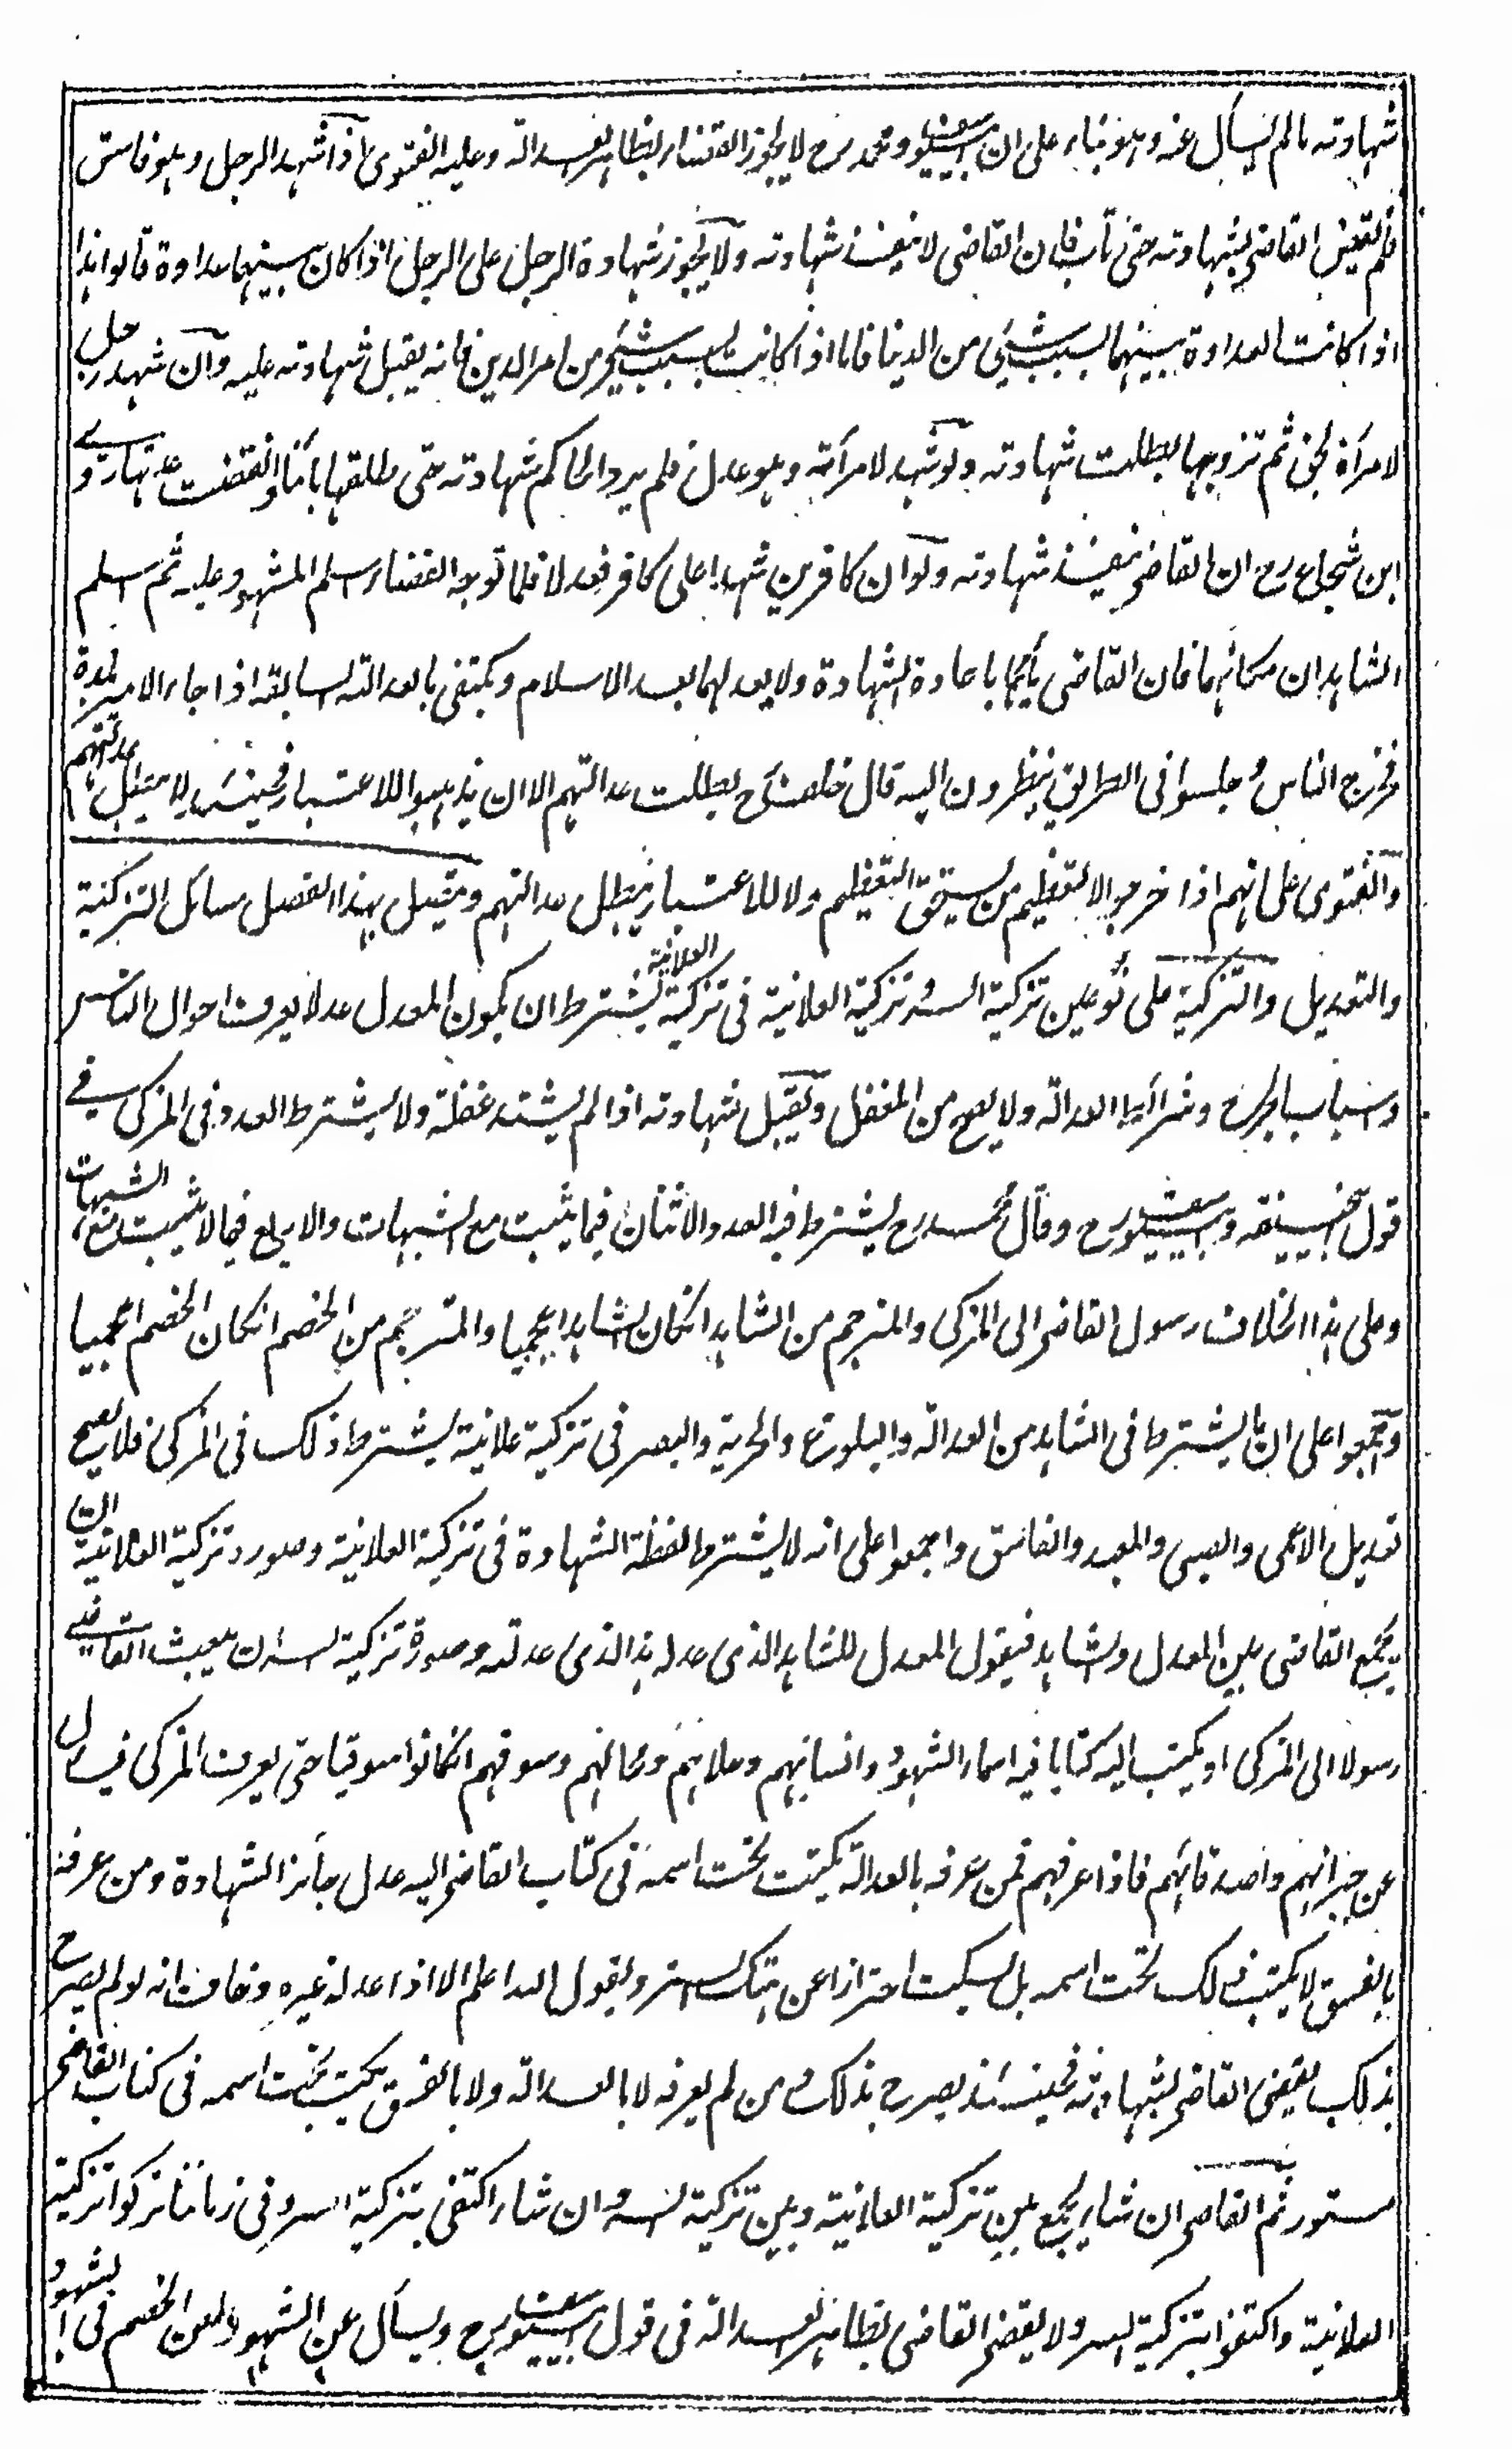 شهادته ما لم يسأل عنه وهو بناء على ان ابييوسف ومحمد رح لا يجوز القضاء بظاهر العدالة وعليه الفتوى اذا شهد الرجل وهو فاسق
فلم يقض القاضى بشهادته حتى تاب فان القاضى لا ينفذ شهادته ولا يجوز شهادة الرجل على الرجل اذا كان بينهما عداوة قالوا هذا
اذا كانت العداوة بينهما بسبب شئ من الدنيا فاما اذا كانت بسبب شئ من امر الدين فانه يقبل شهادته عليه وان شهد رجل
لامرأة بحق ثم تزوجها بطلت شهادته ولو شهد لامرأته وهو عدل فلم يرد الحاكم شهادته حتى طلقها بائنا وانقضت عدتها روى
ابن شجاع رح ان القاضى ينفذ شهادته ولو ان كافرين شهدا على كافر فعدلا فلما توجه القضاء اسلم المشهود عليه ثم اسلم
الشاهدان مكانهما فان القاضى يأمرهما باعادة الشهادة ولا يعدلهما بعد الاسلام ويكتفى بالعدالة السابقة اذا جاء الامير بلدة
فخرج الناس وجلسوا فى الطريق ينظرون اليه قال خلف رح بطلت عدالتهم الا ان يذهبوا للاعتبار فحينئذ لا يبطل عدالتهم
والفتوى على انهم اذا خرجوا لا لتعظيم من يستحق التعظيم ولا للاعتبار يبطل عدالتهم ويتصل بهذا الفصل مسائل التزكية
والتعديل والتزكية على نوعين تزكية السر وتزكية العلانية فى تزكية العلانية يشترط ان يكون المعدل عدلا يعرف احوال الناس
واسباب الجرح وشرائط العدالة ولا يصح من المغفل ويقبل شهادته اذا لم يشتد غفلة ولا يشترط العدد فى المزكى فى
قول ابيحنيفة وابييوسف رح وقال محمد رح يشترط فيه العدد والاثنان فيما يثبت مع الشبهات والاربع فيما لا يثبت مع الشبهات
وعلى هذا الخلاف رسول القاضى الى المزكى والمترجم من الشاهد انكان الشاهد اعجميا والمترجم من الخصم انكان الخصم اعجميا
واجمعوا على ان ما يشترط فى الشاهد من العدالة والبلوغ والحرية والبصر فى تزكية علانية يشترط ذلك فى المزكى فلا يصح
تعديل الاعمى والصبى والعبد والفاسق واجمعوا على انه لا يشترط لفظة الشهادة فى تزكية العلانية وصورة تزكية العلانية ان
يجمع القاضى بين المعدل والشاهد فيقول المعدل للشاهد الذى عدله هذا الذى عدلته وصورة تزكية السر ان يبعث القاضى
رسولا الى المزكى او يكتب اليه كتابا فيه اسماء الشهود وانسابهم وحلاهم ومحالهم وسوقهم انكانوا سوقيا حتى يعرف المزكى فيسأل
عن جيرانهم واصدقائهم فاذا عرفهم فمن عرفه بالعدالة يكتب تحت اسمه فى كتاب القاضى اليه عدل جائز الشهادة ومن عرفه
بالفسق لا يكتب ذلك تحت اسمه بل يسكت احترازا عن هتك الستر ويقول الله اعلم الا اذا عدله غيره وخاف انه لو لم يصرح
بذلك يقضى القاضى بشهادته فحينئذ يصرح بذلك ومن لم يعرفه لا بالعدالة ولا بالفسق يكتب تحت اسمه فى كتاب القاضى
مستور ثم القاضى ان شاء يجمع بين تزكية العلانية وبين تزكية السر وان شاء اكتفى بتزكية السر وفى زماننا تركوا تزكية
العلانية واكتفوا بتزكية السر ولا يقضى القاضى بظاهر العدالة فى قول ابييوسف رح ويسأل عن الشهود طعن الخصم فى الشهود